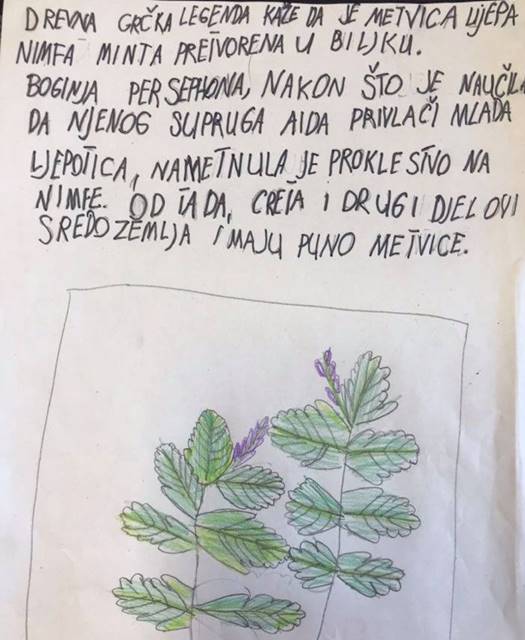 DREVNA GRČKA LEGENDA KAŽE DA JE METVICA LIJEPA
NIMFA MINTA PRETVORENA U BILJKU.
BOGINJA PERSEPHONA, NAKON ŠTO JE NAUČILA
DA NJENOG SUPRUGA AIDA PRIVLAČI MLADA
LJEPOTICA, NAMETNULA JE PROKLESTVO NA
NIMFE. OD TADA, CRETA I DRUGI DJELOVI
SREDOZEMLJA IMAJU PUNO METVICE.